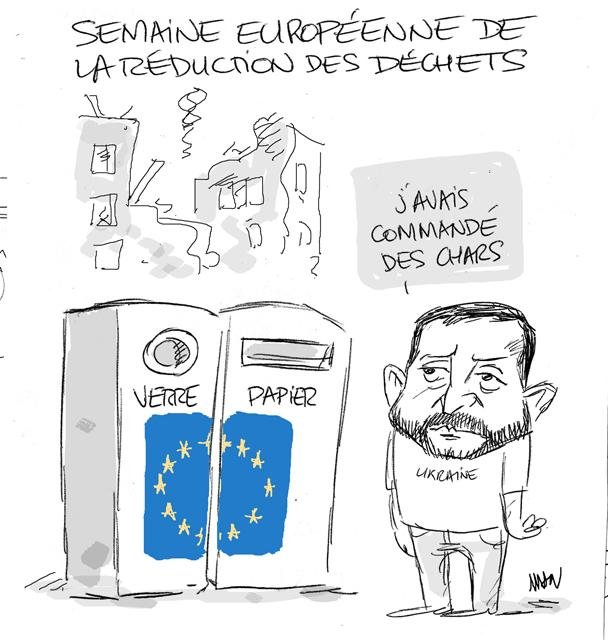 SEMAINE EUROPÉENNE DE
LA RÉDUCTION DES DÉCHETS
J'AVAIS
COMMANDÉ
DES CHARS
VERRE
PAPIER
UKRAINE